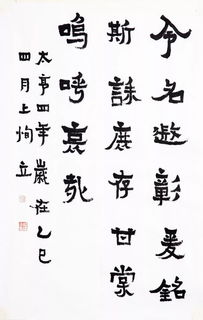 令名遐彰爰銘
斯誄庶存甘棠
嗚呼哀哉
太亨四年歲在乙巳
四月上恂立